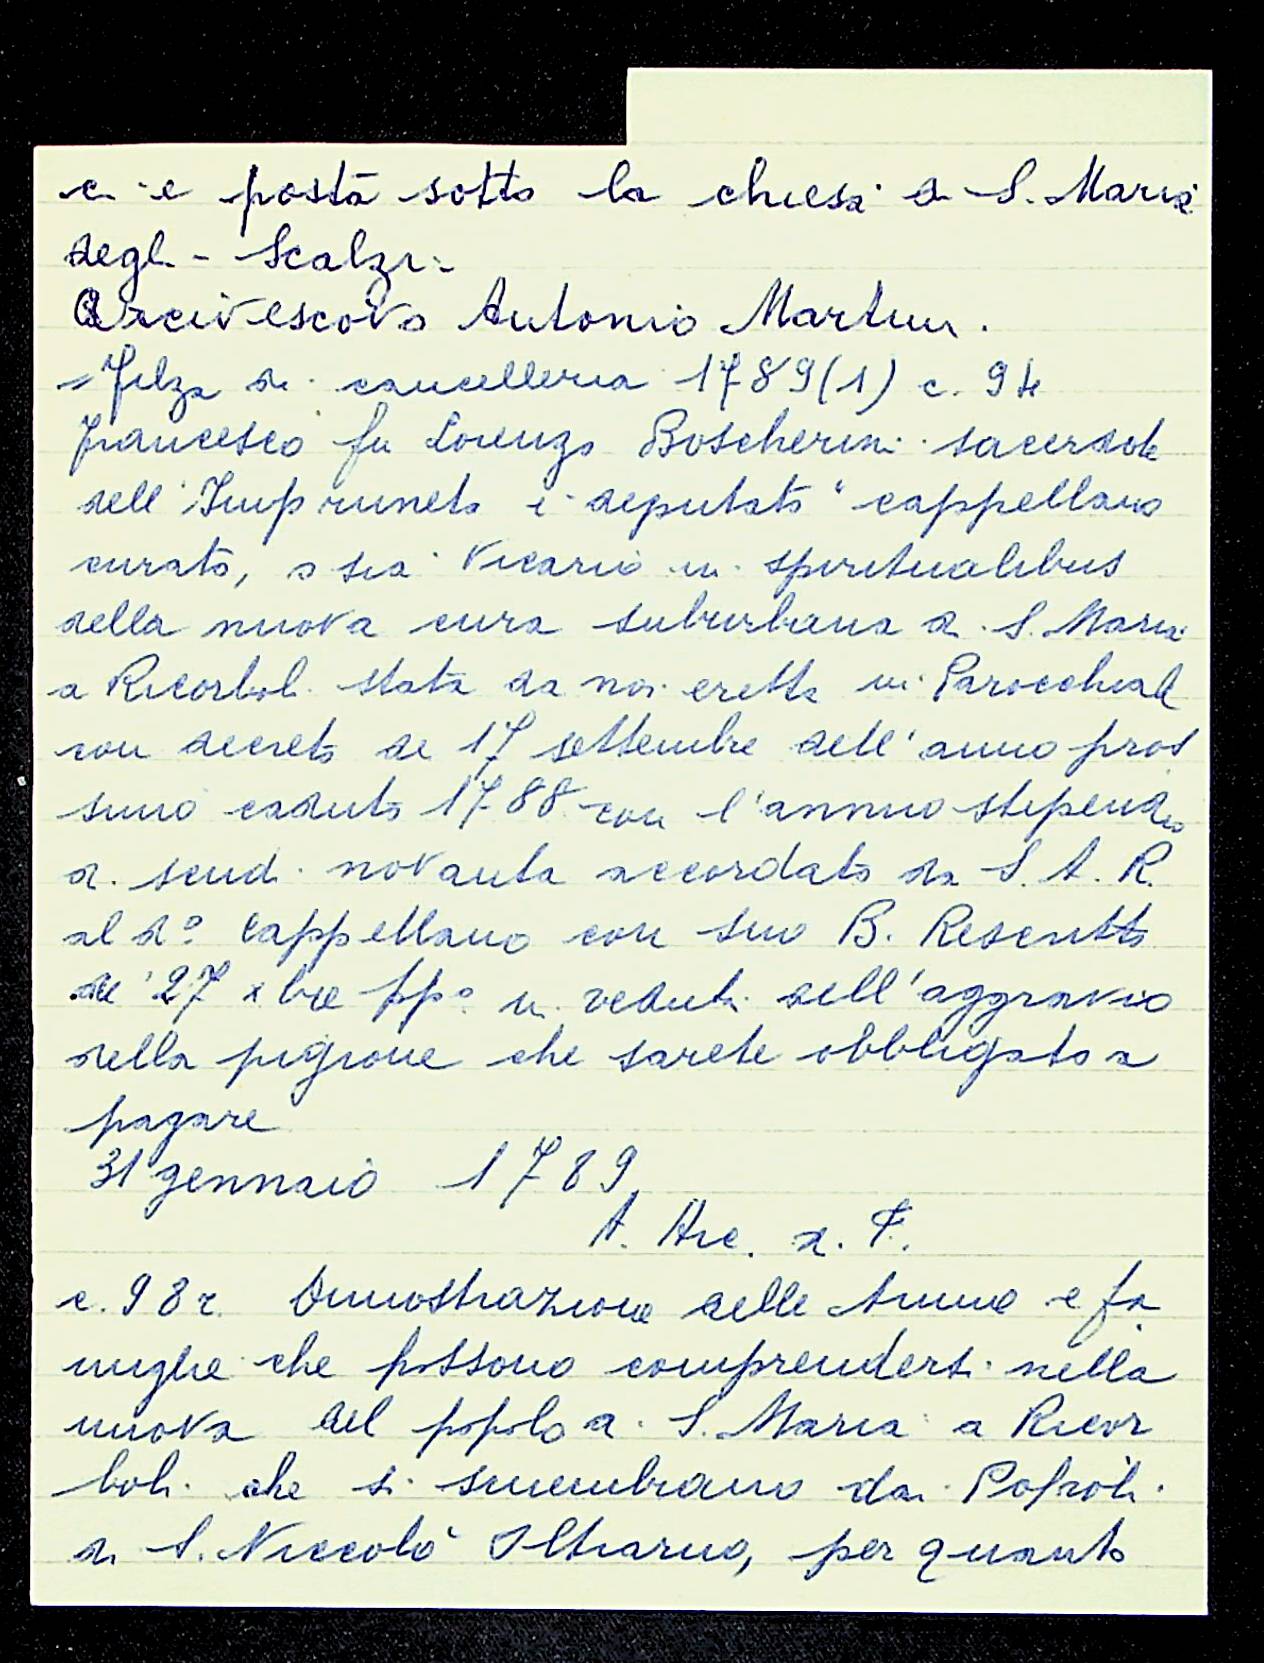 ci è posta sotto la chiesa di S. Maria
degli - Scalzi -
Arcivescovo Antonio Martini.
= Filza di cancelleria 1789(1) c. 94
Francesco fu Lorenzo Boscherini sacerdote
dell'Impruneta è deputato "cappellano
curato, o sia Vicario in spiritualibus
della nuova cura suburbana di S. Maria
a Ricorboli stata da noi eretta in Parocchiale
con decreto de 17 settembre dell'anno pros
simo caduto 1788 con l'annuo stipendio
di scudi novanta accordato da S. A. R.
al d.º Cappellano con suo B. Rescritto
de' 27 xbre pp.º in veduta dell'aggravio
della pigione che sarete obbligato a
pagare
31 gennaio 1789
A. Arc. di F.
c. 98 r. Dimostrazione delle Anime e fa
miglie che possono comprendersi nella
nuova del popolo di S. Maria a Ricor
boli che si smembrano dai Popoli
di S. Niccolò Oltrarno, per quanto